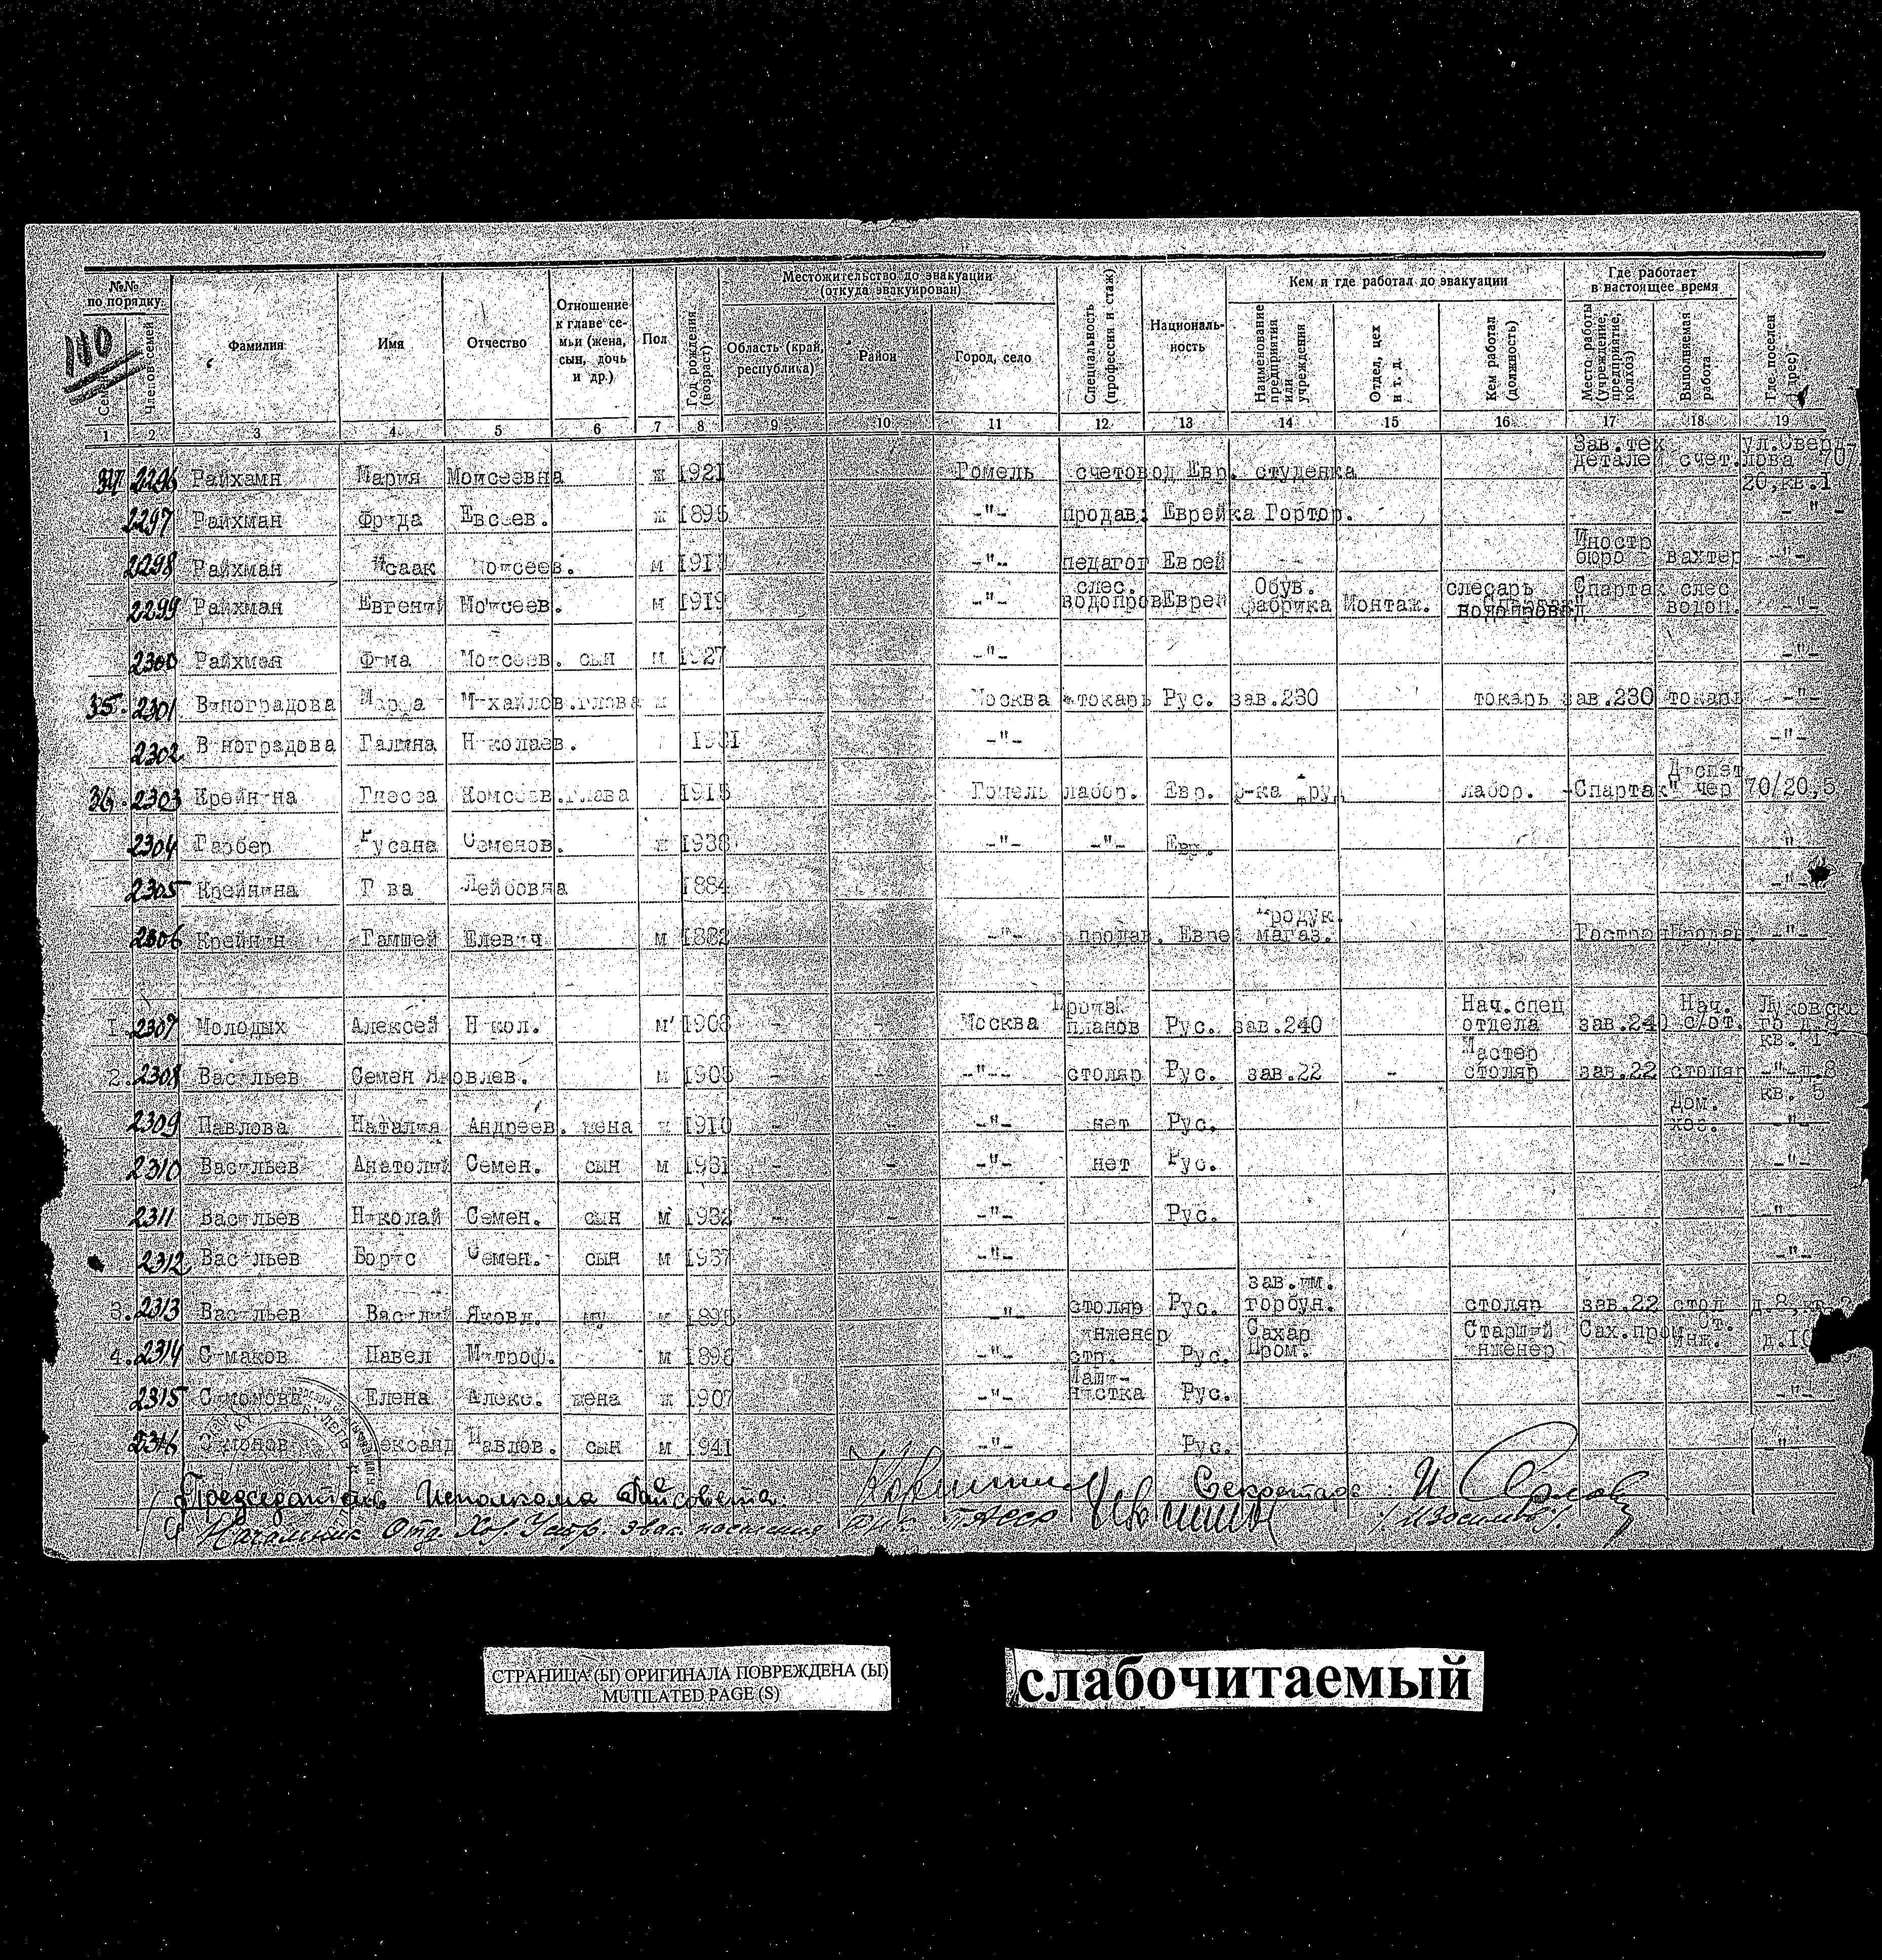 №№ по порядку
Семей
Членов семей
Фамилия
Имя
Отчество
Отношение к главе се-
мьи (жена,
сын, дочь
и др.)
Пол
Год рождения (возраст)
Местожительство до эвакуации
(откуда эвакуирован)
Область (край, республика)
Район
Город, село
Специальность (профессия и стаж)
Националь-
ность
Кем и где работал до эвакуации
Наименование предприятия или учреждения
Отдел, цех и т. д.
Кем работал (должность)
Где работает
в настоящее время
Место работы (учреждение, предприятие, колхоз)
Выполняемая работа
Где поселен (адрес)
110
1 2 3 4 5 6 7 8 9 10 11 12 13 14 15 16 17 18 19
34 2296 Райхамн Мария Моисеевна ж 1921 Гомель счетовод Евр. студенка Зав.тех деталей счет. ул.Сверд-лова 707 20,кв.1
2297 Райхман Фрида Евсеев. ж 1895 -"- продав. Еврейка Гортор. - " -
2298 Райхман Исаак Моисеев. м 1917 -"- педагог Еврей бюро вахтер -"-
2299 Райхман Евгений Моисеев. м 1919 -"- слес. водопров Еврей Обув. фабрика Монтаж. слесарь водопровод Спартак слес водоп. -"-
2300 Райхман Фима Моисеев. сын м 1927 -"- -"-
35. 2301 Виноградова Михайлов. глава Москва токарь Рус. зав.230 токарь зав.230 токарь -"-
2302 Виноградова Галина Николаев. 1931 -"- -"-
36. 2303 Крейнина глава 1915 Гомель лабор. Евр. лабор. Спартак" Диспет чер 70/20,5
2304 Гарбер Русана Семенов. ж 1938 -"- -"- Евр. "
2305 Крейнина Лейбовна 1884 -"-
2306 Крейнин Гамшей Елевич м 1882 -"- продав. Еврей Продук. магаз. Продав. -"-
1. 2307 Молодых Алексей Никол. м 1908 - - Москва планов Рус. зав.240 Нач.спец отдела зав.240 Нач. с/от. кв. 1
2. 2308 Васильев Семен Яковлев. м 1905 - - -"- столяр Рус. зав.22 - Мастер столяр зав.22 столяр -"- д.8 кв. 5
2309 Павлова Наталия Андреев. жена ж 1910 - - -"- нет Рус. Дом. хоз. -"-
2310 Васильев Анатолий Семен. сын м 1931 - - -"- нет Рус. -"-
2311 Васильев Николай Семен. сын м 1932 - - -"- Рус. "
2312 Васильев Борис Семен. сын м 1937 -"- -"-
3. 2313 Васильев Василий Яковл. м -"- столяр Рус. зав.им. горбун. столяр зав.22 стол
4. 2314 Симаков Павел Митроф. м 1896 -"- инженер стр. Рус. Сахар Пром. Старший инженер Сах.пром Ст. инж.
2315 Елена Алекс. жена ж 1907 -"- Маши-нистка Рус. -"-
2316 Александ Павлов. сын м 1941 -"- Рус. -"-
Председатель Исполкома Райсовета Секретарь:
Начальник Отд. Хоз. Устр. эвак. населения ТАССР
СТРАНИЦА (Ы) ОРИГИНАЛА ПОВРЕЖДЕНА (Ы)
MUTILATED PAGE (S)
слабочитаемый